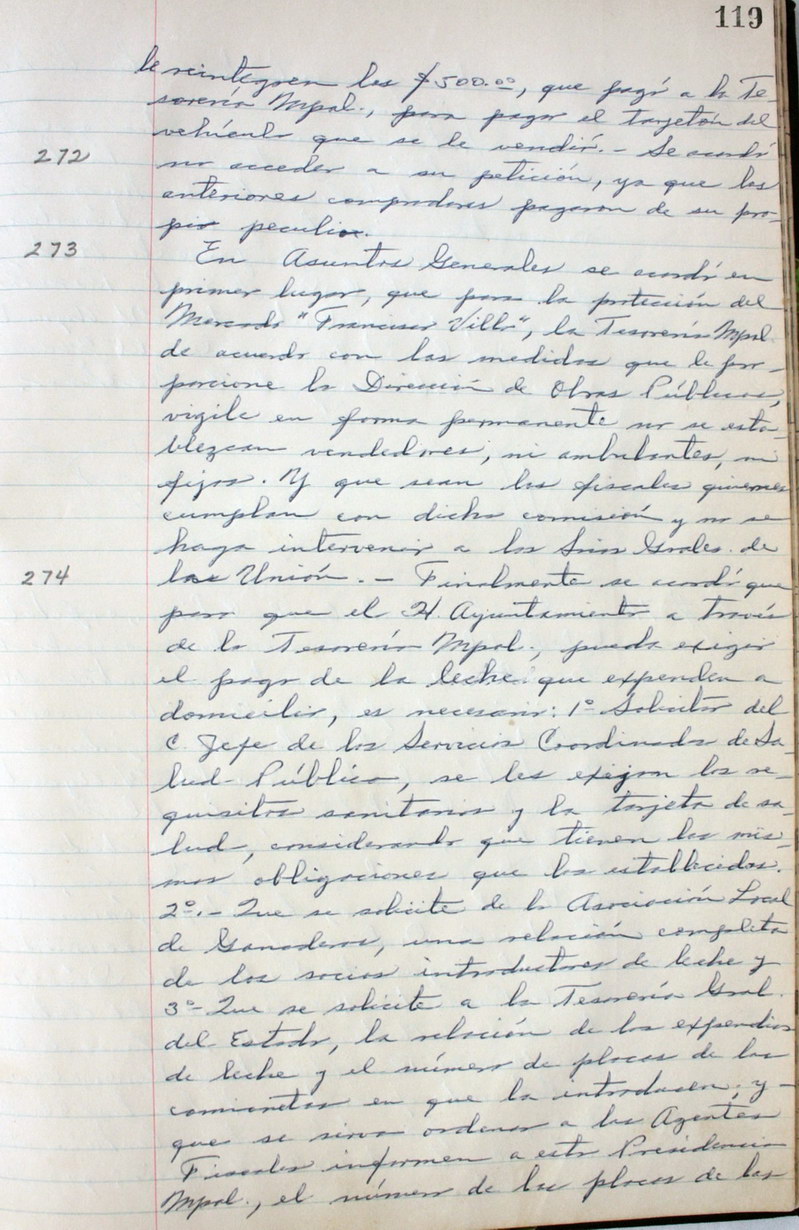 119
le reintegren los $500.00, que pagó a la Te-
sorería Mpal., para pagar el tarjetón del
vehículo que se le vendió.- Se acordó
272
no acceder a su petición, ya que los
anteriores compradores pagaron de su pro-
pio peculio.
273
En Asuntos Generales se acordó en
primer lugar, que para la protección del
Mercado "Francisco Villa", la Tesorería Mpal.
de acuerdo con las medidas que le pro-
porcione la Dirección de Obras Públicas,
vigile en forma permanente no se esta-
blezcan vendedores, ni ambulantes, ni
fijos. Y que sean los fiscales quienes
cumplan con dicha comisión y no se
haga intervenir a los Srios Grales. de
274
las Unión.- Finalmente se acordó que
para que el H. Ayuntamiento a través
de la Tesorería Mpal., pueda exigir
el pago de la leche que expenden a
domicilio, es necesario: 1º Solicitar del
C. Jefe de los Servicios Coordinados de Sa-
lud Pública, se les exijan los re-
quisitos sanitarios y la tarjeta de sa-
lud, considerando que tienen las mis-
mas obligaciones que los establecidos.
2º.- Que se solicite de la Asociación Local
de Ganaderos, una relación completa
de los socios introductores de leche y
3º- Que se solicite a la Tesorería Gral.
del Estado, la relación de los expendios
de leche y el número de placas de las
camionetas en que la introducen, y-
que se sirva ordenar a los Agentes
Fiscales informen a esta Presidencia
Mpal., el número de las placas de las